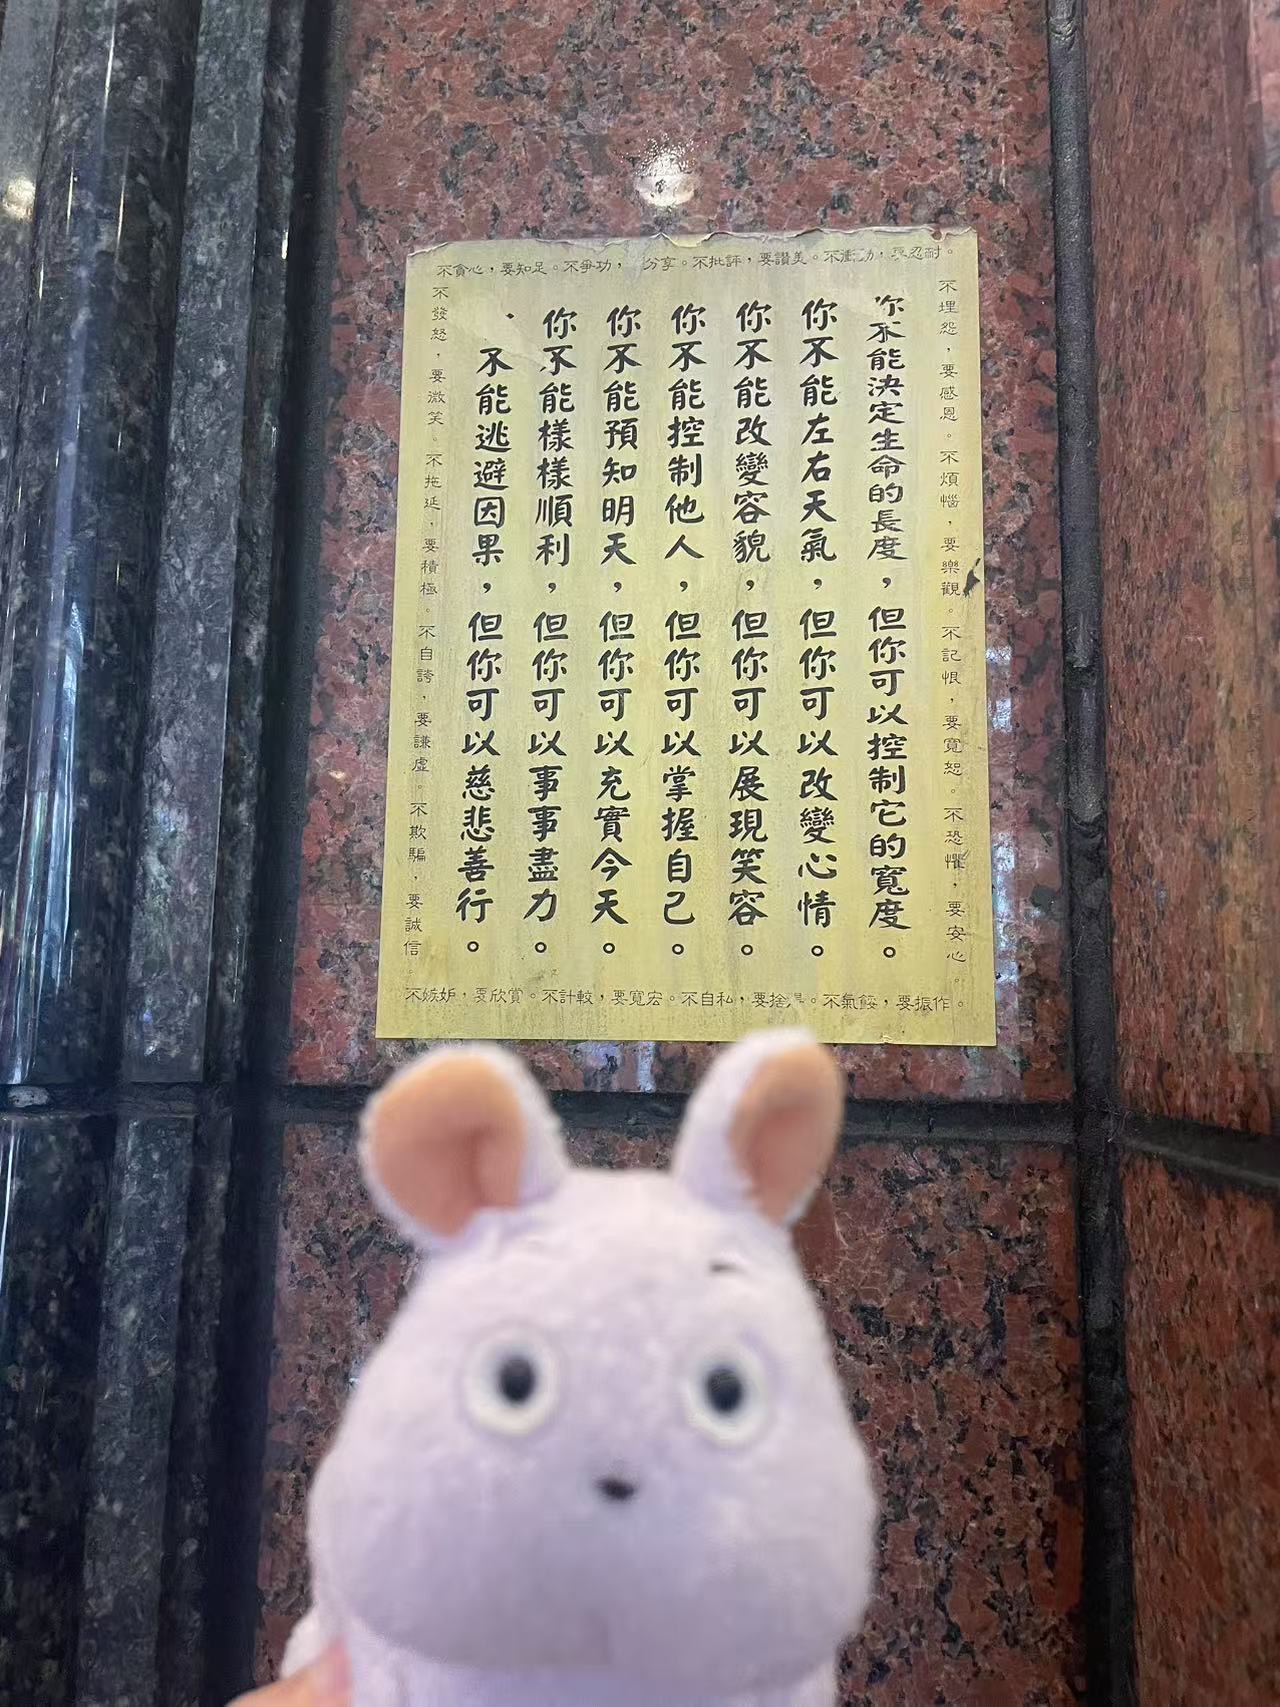 不貪心，要知足。不爭功，分享。不批評，要讚美。不衝動，要忍耐。
不埋怨，要感恩。不煩惱，要樂觀。不記恨，要寬恕。不恐懼，要安心。
你不能決定生命的長度，但你可以控制它的寬度。
你不能左右天氣，但你可以改變心情。
你不能改變容貌，但你可以展現笑容。
你不能控制他人，但你可以掌握自己。
你不能預知明天，但你可以充實今天。
你不能樣樣順利，但你可以事事盡力。
不能逃避因果，但你可以慈悲善行。
不發怒，要微笑。不拖延，要積極。不自誇，要謙虛。不欺騙，要誠信。
不嫉妒，要欣賞。不計較，要寬宏。不自私，要捨得。不氣餒，要振作。